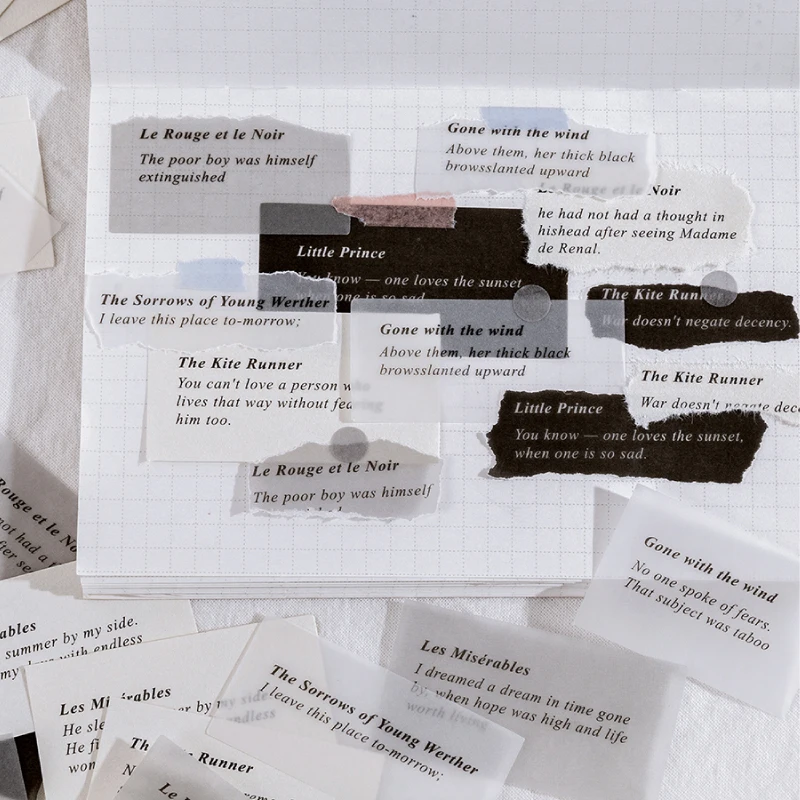 Le Rouge et le Noir
The poor boy was himself
extinguished
Gone with the wind
Above them, her thick black
browsslanted upward
Le Rouge et le Noir
he had not had a thought in
hishead after seeing Madame
de Renal.
Little Prince
You know — one loves the sunset
one is so sad
The Sorrows of Young Werther
I leave this place to-morrow;
The Kite Runner
War doesn't negate decency.
Gone with the wind
Above them, her thick black
browsslanted upward
The Kite Runner
You can't love a person w
lives that way without fea
him too.
The Kite Runner
War doesn't negate dece
Little Prince
You know — one loves the sunset,
when one is so sad.
Le Rouge et le Noir
The poor boy was himself
Rouge et le No
not had a t
fter se
Gone with the wind
No one spoke of fears.
That subject was taboo
ables
summer by my side.
my days with endless
Les Misérables
He sle
He fi
won
summer by my side
endless
The Sorrows of Young Werther
I leave this place to-morrow;
Les Misérables
I dreamed a dream in time gone
by, when hope was high and life
worth living
Th Runner
N
Le